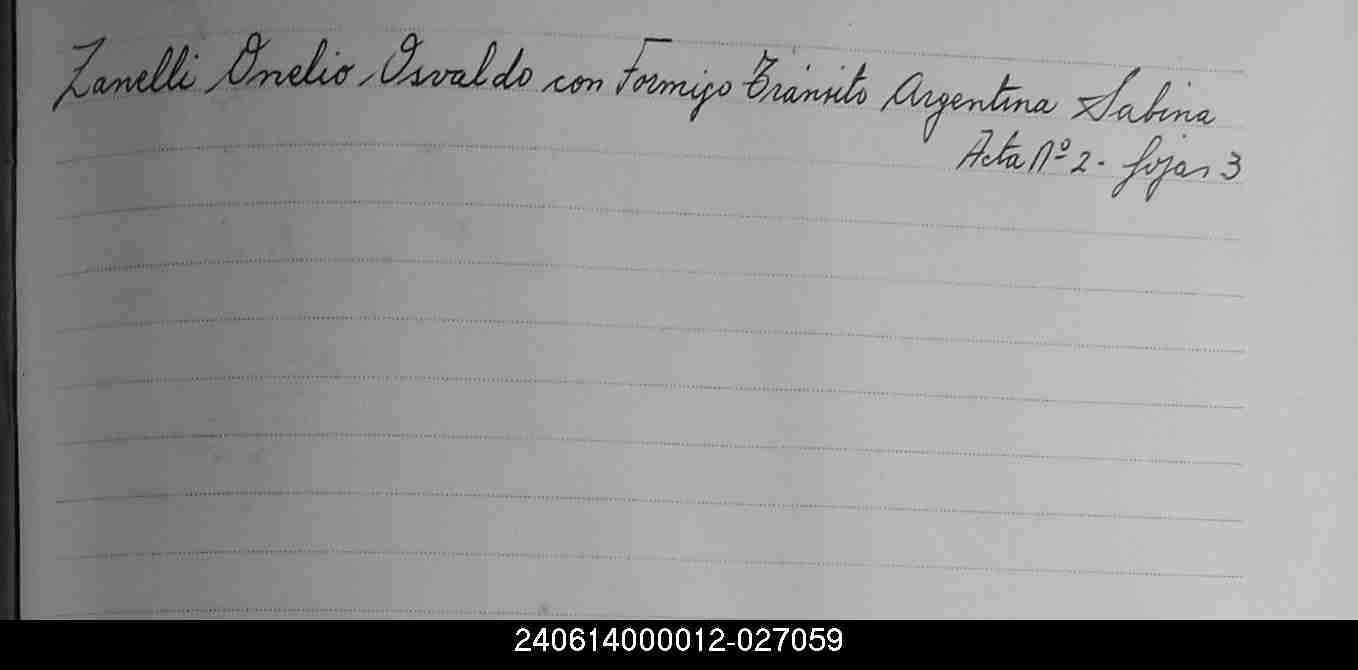 Zanelli Onelio Osvaldo con Formigo Tránsito Argentina Sabina
Acta Nº 2 - fojas 3
240614000012-027059